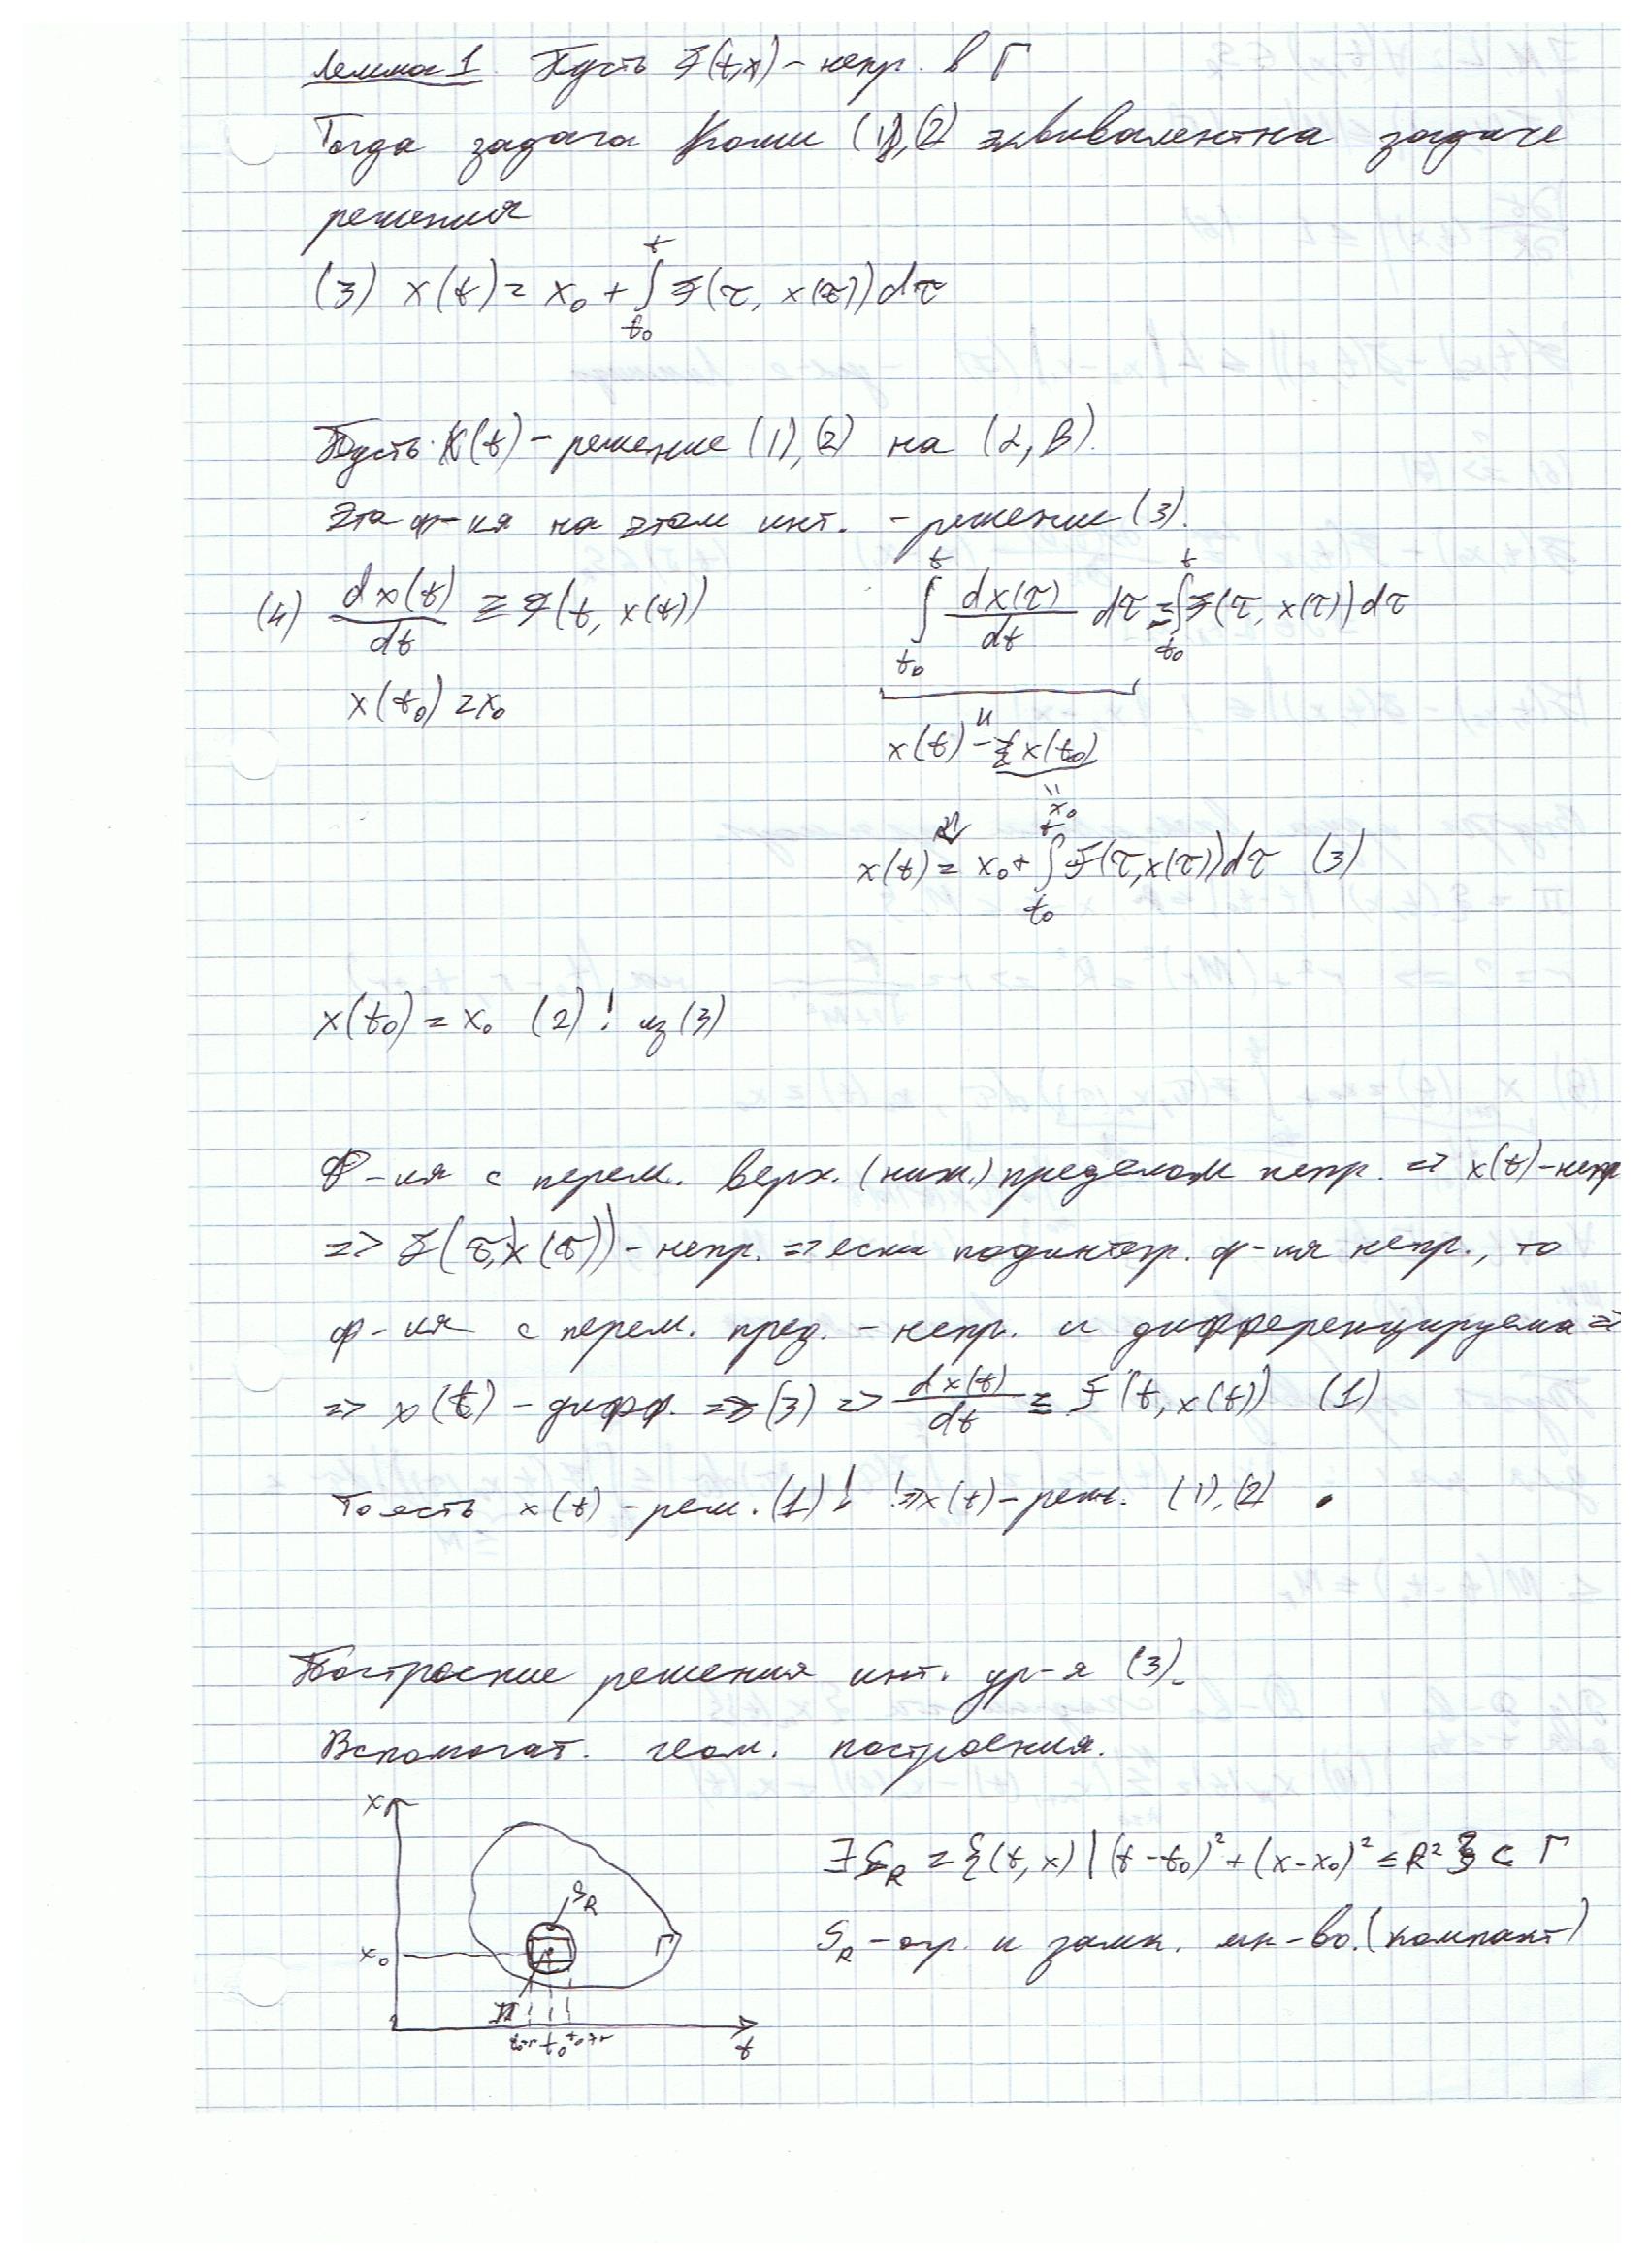 Лемма 1. Пусть f(t,x) – непр. в Г
Тогда задача Коши (1),(2) эквивалентна задаче
решения
(3) x(t) = x₀ + ∫_{t₀}^{t} f(τ, x(τ))dτ
Пусть x(t) – решение (1),(2) на (α, β).
Эта ф-ия на этом инт. – решение (3).
(4) dx(t)/dt ≡ f(t, x(t)) ∫_{t₀}^{t} dx(τ)/dt dτ = ∫_{t₀}^{t} f(τ, x(τ))dτ
x(t₀) = x₀
x(t) – x(t₀)
= x₀
⇓
x(t) = x₀ + ∫_{t₀}^{t} f(τ, x(τ))dτ (3)
x(t₀) = x₀ (2) ! из (3)
Ф-ия с перем. верх. (ниж.) пределом непр. => x(t) – непр
=> f(τ, x(τ)) – непр. => если подинтегр. ф-ия непр., то
ф-ия с перем. пред. – непр. и дифференцируема =>
=> x(t) – дифф. => (3) => dx(t)/dt ≡ f(t, x(t)) (1)
То есть x(t) – реш. (1) ! ! => x(t) – реш. (1),(2) .
Построение решения инт. ур-я (3).
Вспомогат. геом. построения.
x
∃ S_R = {(t, x) | (t – t₀)² + (x – x₀)² ≤ R²} ⊂ Г
S_R
S_R – огр. и замк. мн-во. (компакт)
x₀ Г
П
t₀-r t₀ t₀+r
t